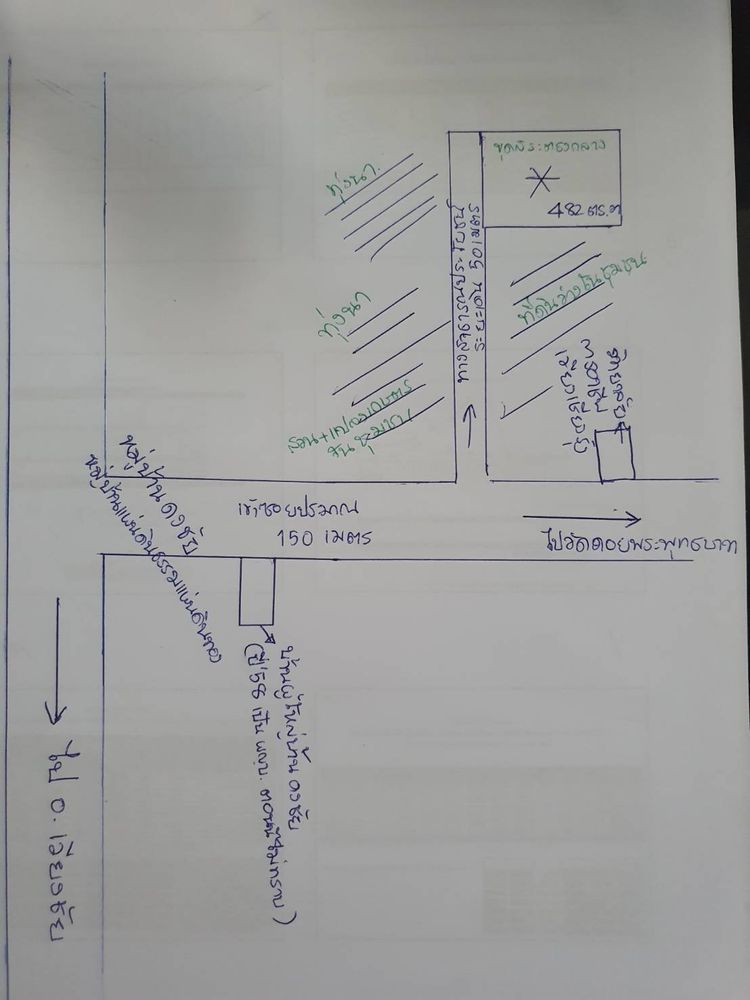 ทุ่งนา
ขุดสระตรงกลาง
482 ตร.ว
ทุ่งนา
ทางสาธารณประโยชน์
ระยะลึก 50 เมตร
ที่ดินว่างในชุมชน
สวน+แปลงเกษตร
ในชุมชน
เข้าซอยประมาณ
150 เมตร
ไปวัดดอยพระพุทธบาท
หมู่บ้านดงชัย
หมู่บ้านแผ่นดินธรรมแผ่นดินทอง
บ้านผู้ใหญ่บ้าน ดงชัย
(ปี'58 เป็น ผญบ. ตอนนี้ไม่ทราบ)
ไป อ. เวียงชัย